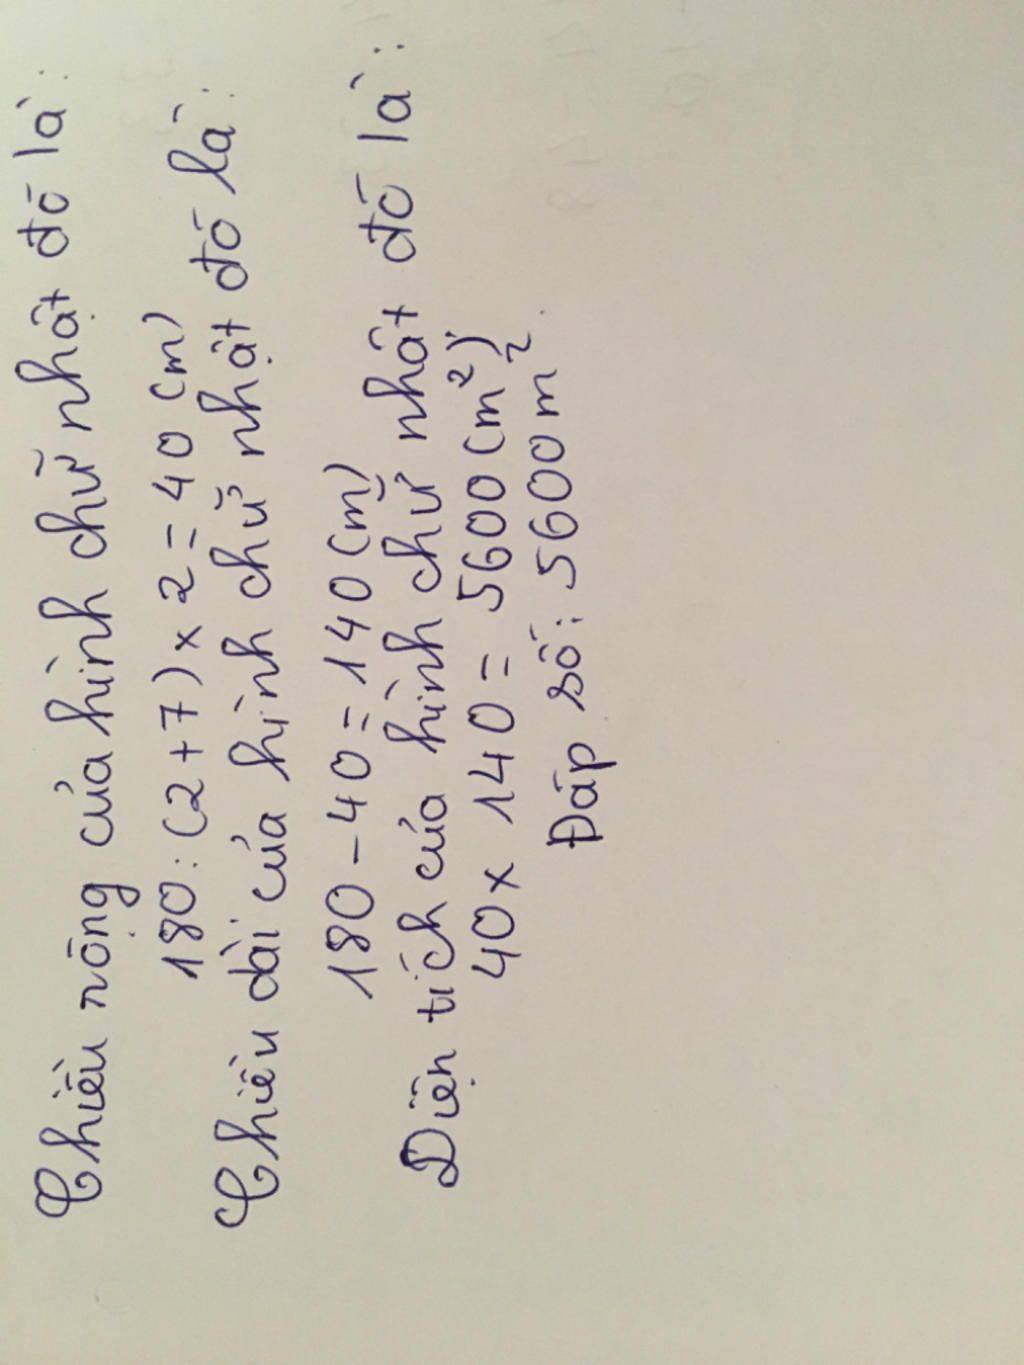 Chiều rộng của hình chữ nhật đó là:
180:(2+7)×2=40(m)
Chiều dài của hình chữ nhật đó là:
180-40=140(m)
Diện tích của hình chữ nhật đó là:
40×140=5600(m²)
Đáp số: 5600m²